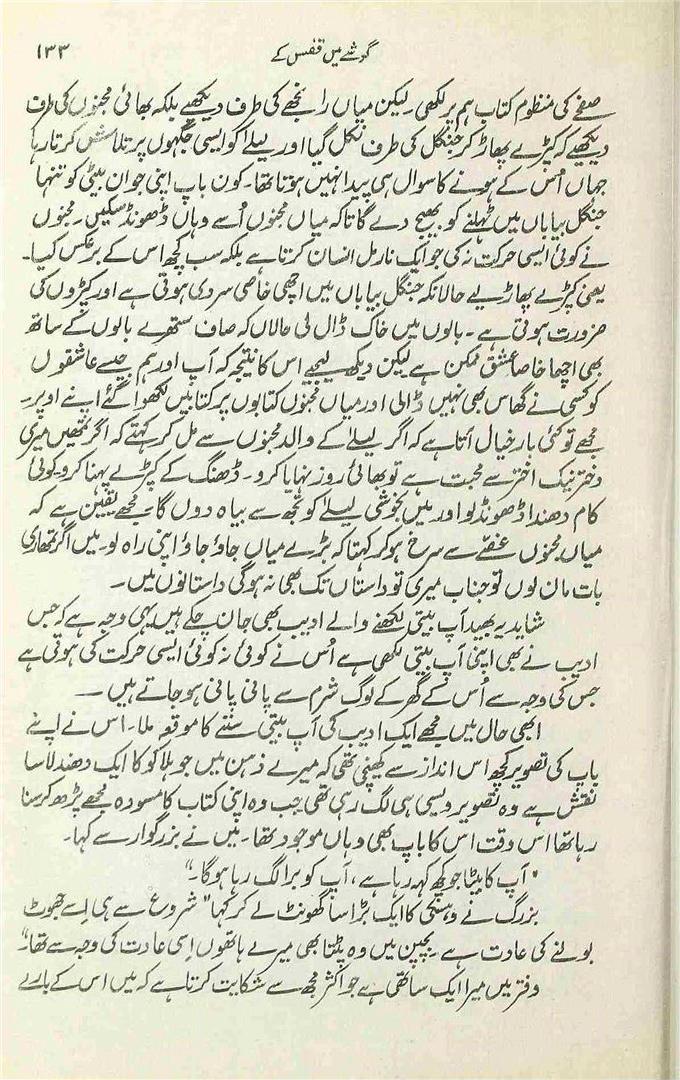 گوشے میں قفس کے ۱۳۳
صفحے کی منظوم کتاب ہم پر لکھی۔ لیکن میاں رانجھے کی طرف دیکھیے بلکہ بھائی مجنوں کی طرف
دیکھیے کہ کپڑے پھاڑ کر جنگل کی طرف نکل گیا اور لیلےٰ کو ایسی جگہوں پر تلاش کرتا رہا
جہاں اُس کے ہونے کا سوال ہی پیدا نہیں ہوتا تھا۔ کون باپ اپنی جوان بیٹی کو تنہا
جنگل بیاباں میں ٹہلنے کو بھیج دے گا تاکہ میاں مجنوں اُسے وہاں ڈھونڈ سکیں۔ مجنوں
نے کوئی ایسی حرکت نہ کی جو ایک نارمل انسان کرتا ہے بلکہ سب کچھ اس کے برعکس کیا۔
یعنی کپڑے پھاڑ لیے حالانکہ جنگل بیاباں میں اچھی خاصی سردی ہوتی ہے اور کپڑوں کی
ضرورت ہوتی ہے۔ بالوں میں خاک ڈال لی حالاں کہ صاف ستھرے بالوں کے ساتھ
بھی اچھا خاصا عشق ممکن ہے لیکن دیکھ لیجیے اس کا نتیجہ کہ آپ اور ہم جیسے عاشقوں
کو کسی نے گھاس بھی نہیں ڈالی اور میاں مجنوں کتابوں پر کتابیں لکھوا گئے اپنے اوپر۔
مجھے تو کئی بار خیال آتا ہے کہ اگر لیلےٰ کے والد مجنوں سے مل کر کہتے کہ اگر تمھیں میری
دختر نیک اختر سے محبت ہے تو بھائی روز نہایا کرو۔ ڈھنگ کے کپڑے پہنا کرو۔ کوئی
کام دھندا ڈھونڈ لو اور میں بخوشی لیلےٰ کو تجھ سے بیاہ دوں گا۔ مجھے یقین ہے کہ
میاں مجنوں غصّے سے سرخ ہو کر کہتا کہ بڑے میاں جاؤ جاؤ اپنی راہ لو۔ میں اگر تمھاری
بات مان لوں تو جناب میری تو داستاں تک بھی نہ ہوگی داستانوں میں۔
شاید یہ بھید آپ بیتی لکھنے والے ادیب بھی جان چکے ہیں یہی وجہ ہے کہ جس
ادیب نے بھی اپنی آپ بیتی لکھی ہے اُس نے کوئی نہ کوئی ایسی حرکت کی ہوتی ہے
جس کی وجہ سے اُس کے گھر کے لوگ شرم سے پانی پانی ہو جاتے ہیں ۔۔
ابھی حال میں مجھے ایک ادیب کی آپ بیتی سننے کا موقعہ ملا۔ اس نے اپنے
باپ کی تصویر کچھ اس انداز سے کھینچی تھی کہ میرے ذہن میں جو ہلاکو کا ایک دھندلا سا
نقش ہے وہ تصویر ویسی ہی لگ رہی تھی جب وہ اپنی کتاب کا مسودہ مجھے پڑھ کر سنا
رہا تھا اس وقت اس کا باپ بھی وہاں موجود تھا۔ میں نے بزرگوار سے کہا۔
"آپ کا بیٹا جو کچھ کہہ رہا ہے، آپ کو برا لگ رہا ہو گا۔"
بزرگ نے وہسکی کا ایک بڑا سا گھونٹ لے کر کہا "شروع سے ہی اِسے جھوٹ
بولنے کی عادت ہے۔ بچپن میں وہ پٹتا بھی میرے ہاتھوں اِسی عادت کی وجہ سے تھا۔"
دفتر میں میرا ایک ساتھی ہے جو اکثر مجھ سے شکایت کرتا ہے کہ میں اس کے بارے